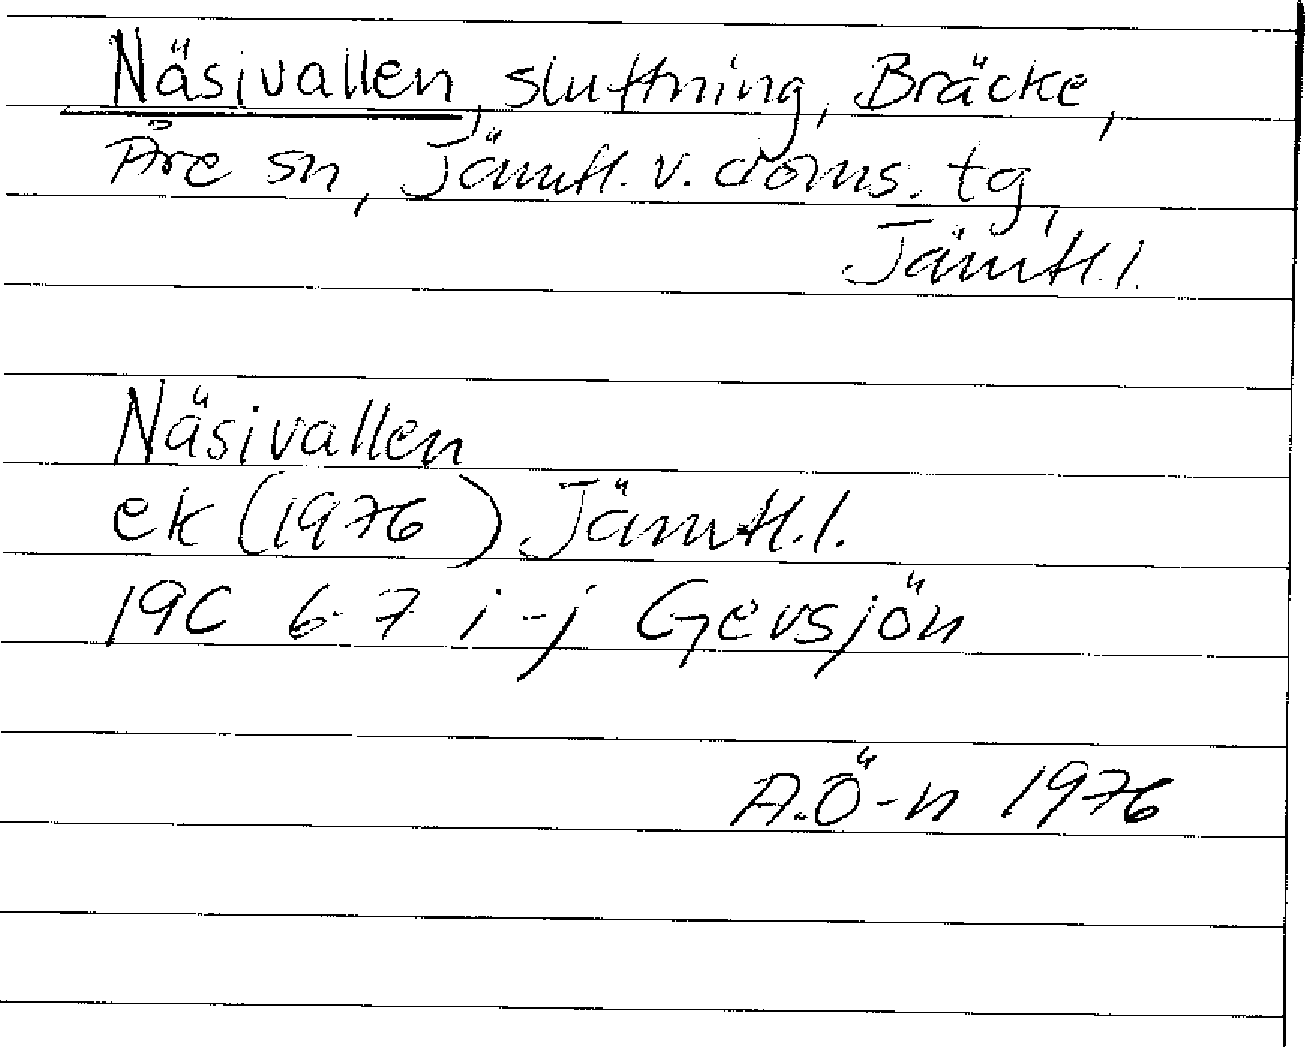 Näsivallen, sluttning, Bräcke,
Åre sn, Jämtl. v. doms. tg,
Jämtl. l.
Näsivallen
ek (1976) Jämtl. l.
19C 6-7 i-j Gevsjön
A.Ö-n 1976